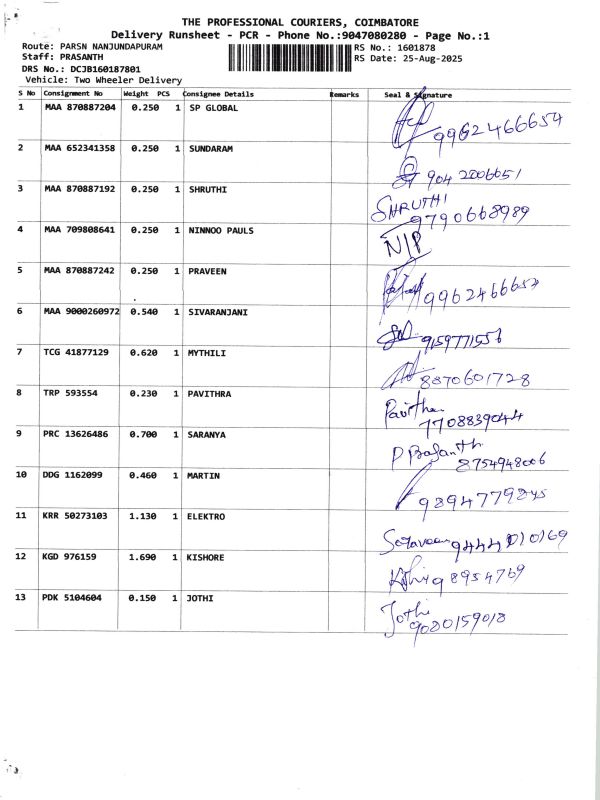 THE PROFESSIONAL COURIERS, COIMBATORE
Delivery Runsheet - PCR - Phone No.:9047080280 - Page No.:1
Route: PARSN NANJUNDAPURAM
RS No.: 1601878
Staff: PRASANTH
RS Date: 25-Aug-2025
DRS No.: DCJB160187801
Vehicle: Two Wheeler Delivery
S No Consignment No Weight PCS Consignee Details Remarks Seal & Signature
1 MAA 870887204 0.250 1 SP GLOBAL
9962466654
2 MAA 652341358 0.250 1 SUNDARAM
904 2006651
3 MAA 870887192 0.250 1 SHRUTHI SHRUTHI
9790668989
4 MAA 709808641 0.250 1 NINNOO PAULS N/P
5 MAA 870887242 0.250 1 PRAVEEN
6 MAA 9000260972 0.540 1 SIVARANJANI
9159771556
7 TCG 41877129 0.620 1 MYTHILI
8870601728
8 TRP 593554 0.230 1 PAVITHRA
7708839044
9 PRC 13626486 0.700 1 SARANYA
8754948006
10 DDG 1162099 0.460 1 MARTIN
11 KRR 50273103 1.130 1 ELEKTRO
12 KGD 976159 1.690 1 KISHORE
13 PDK 5104604 0.150 1 JOTHI Jothi
9080159018